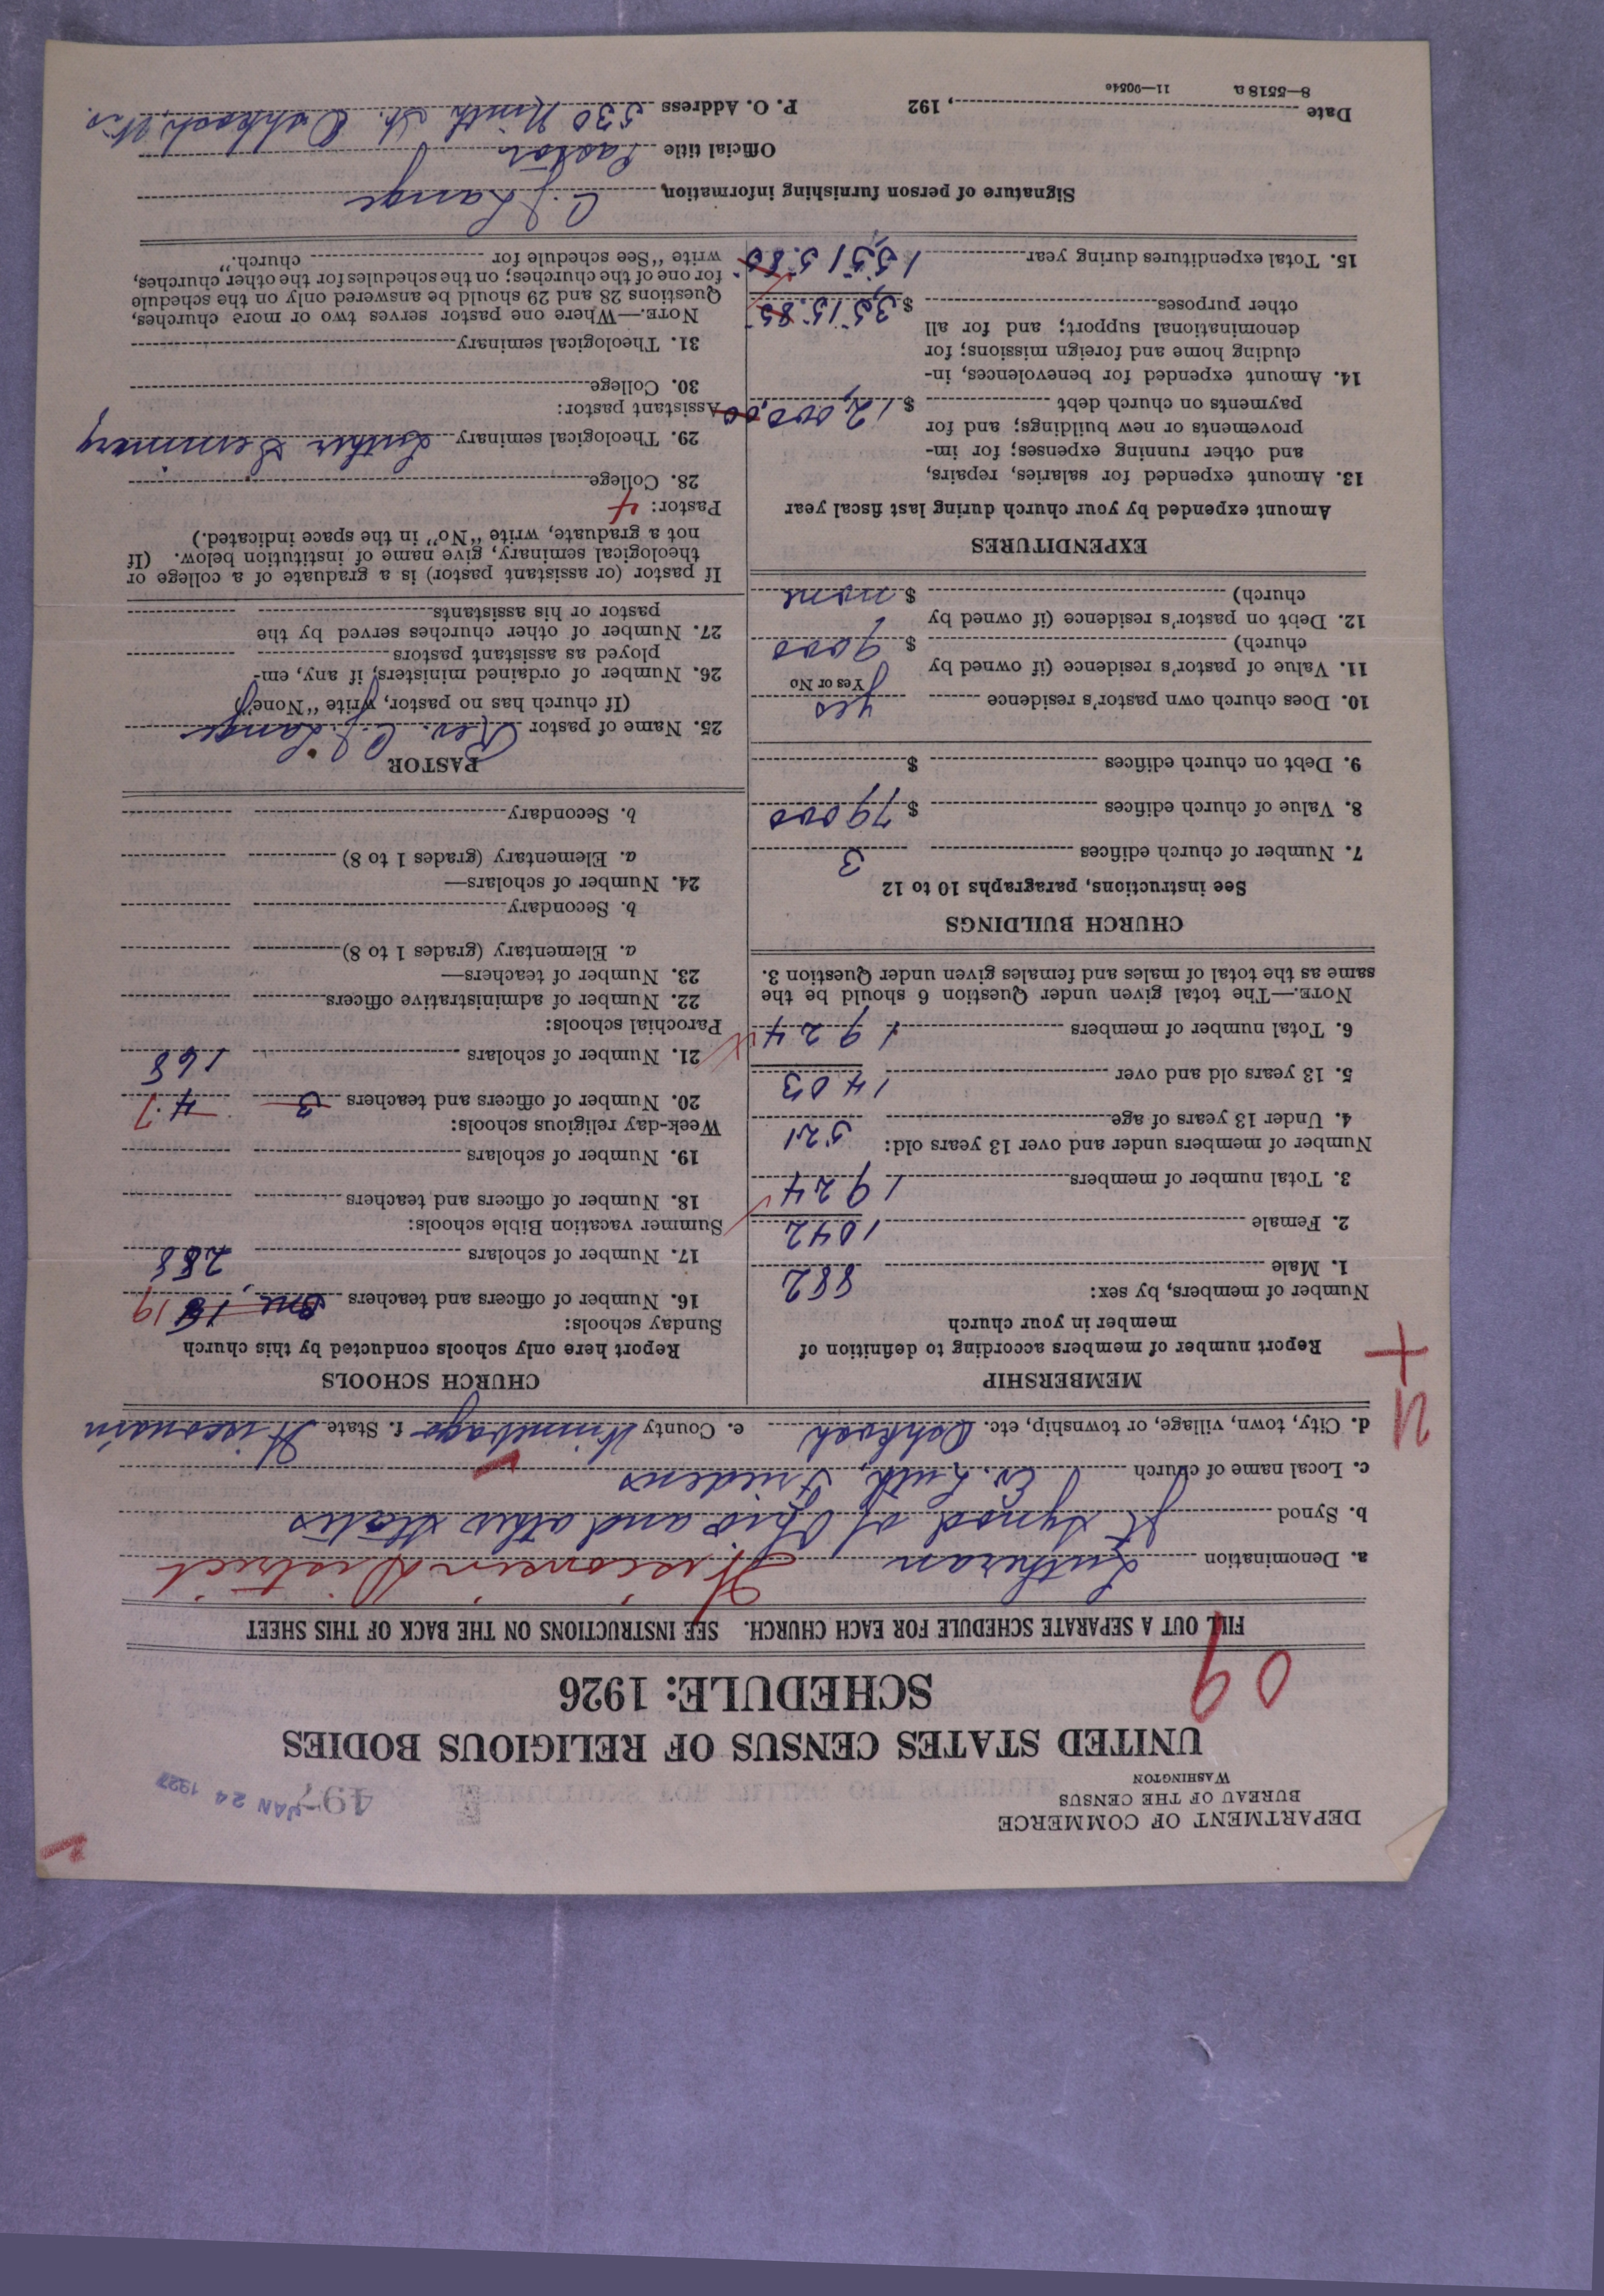 DEPARTMENT OF COMMERCE
BUREAU OF THE CENSUS
WASHINGTON
JAN 24 1927
UNITED STATES CENSUS OF RELIGIOUS BODIES
SCHEDULE: 1926
09
FILL OUT A SEPARATE SCHEDULE FOR EACH CHURCH. SEE INSTRUCTIONS ON THE BACK OF THIS SHEET
a. Denomination Lutheran Wisconsin District
b. Synod Jt Synod of Ohio and other States
c. Local name of church Ev. Luth. Friedens
d. City, town, village, or township, etc. Oshkosh e. County Winnebago f. State Wisconsin
MEMBERSHIP
Report number of members according to definition of
member in your church
Number of members, by sex:
1. Male 882
2. Female 1042
3. Total number of members 1924
Number of members under and over 13 years old:
4. Under 13 years of age 521
5. 13 years old and over 1403
6. Total number of members 1924
NOTE.—The total given under Question 6 should be the
same as the total of males and females given under Question 3.
CHURCH BUILDINGS
See instructions, paragraphs 10 to 12
7. Number of church edifices 3
8. Value of church edifices $ 79000
9. Debt on church edifices $
10. Does church own pastor's residence yes
Yes or No
11. Value of pastor's residence (if owned by
church) $ 9000
12. Debt on pastor's residence (if owned by
church) $ none
EXPENDITURES
Amount expended by your church during last fiscal year
13. Amount expended for salaries, repairs,
and other running expenses; for im-
provements or new buildings; and for
payments on church debt $ 12,000,00
14. Amount expended for benevolences, in-
cluding home and foreign missions; for
denominational support; and for all
other purposes $ 3,515.85
15. Total expenditures during year 15,515.85
CHURCH SCHOOLS
Report here only schools conducted by this church
Sunday schools:
16. Number of officers and teachers 19
17. Number of scholars 288
Summer vacation Bible schools:
18. Number of officers and teachers
19. Number of scholars
Week-day religious schools:
20. Number of officers and teachers 3 4 7
21. Number of scholars 168
Parochial schools:
22. Number of administrative officers
23. Number of teachers—
a. Elementary (grades 1 to 8)
b. Secondary
24. Number of scholars—
a. Elementary (grades 1 to 8)
b. Secondary
PASTOR
25. Name of pastor Rev. C. J. Lange
(If church has no pastor, write "None")
26. Number of ordained ministers, if any, em-
ployed as assistant pastors
27. Number of other churches served by the
pastor or his assistants
If pastor (or assistant pastor) is a graduate of a college or
theological seminary, give name of institution below. (If
not a graduate, write "No" in the space indicated.)
Pastor: 4
28. College
29. Theological seminary Luther Seminary
Assistant pastor:
30. College
31. Theological seminary
NOTE.—Where one pastor serves two or more churches,
Questions 28 and 29 should be answered only on the schedule
for one of the churches; on the schedules for the other churches,
write "See schedule for church."
Signature of person furnishing information, C. J. Lange
Official title Pastor
Date , 192 P. O. Address 530 Ninth St. Oshkosh, Wis.
8—5518 a 11—9054c